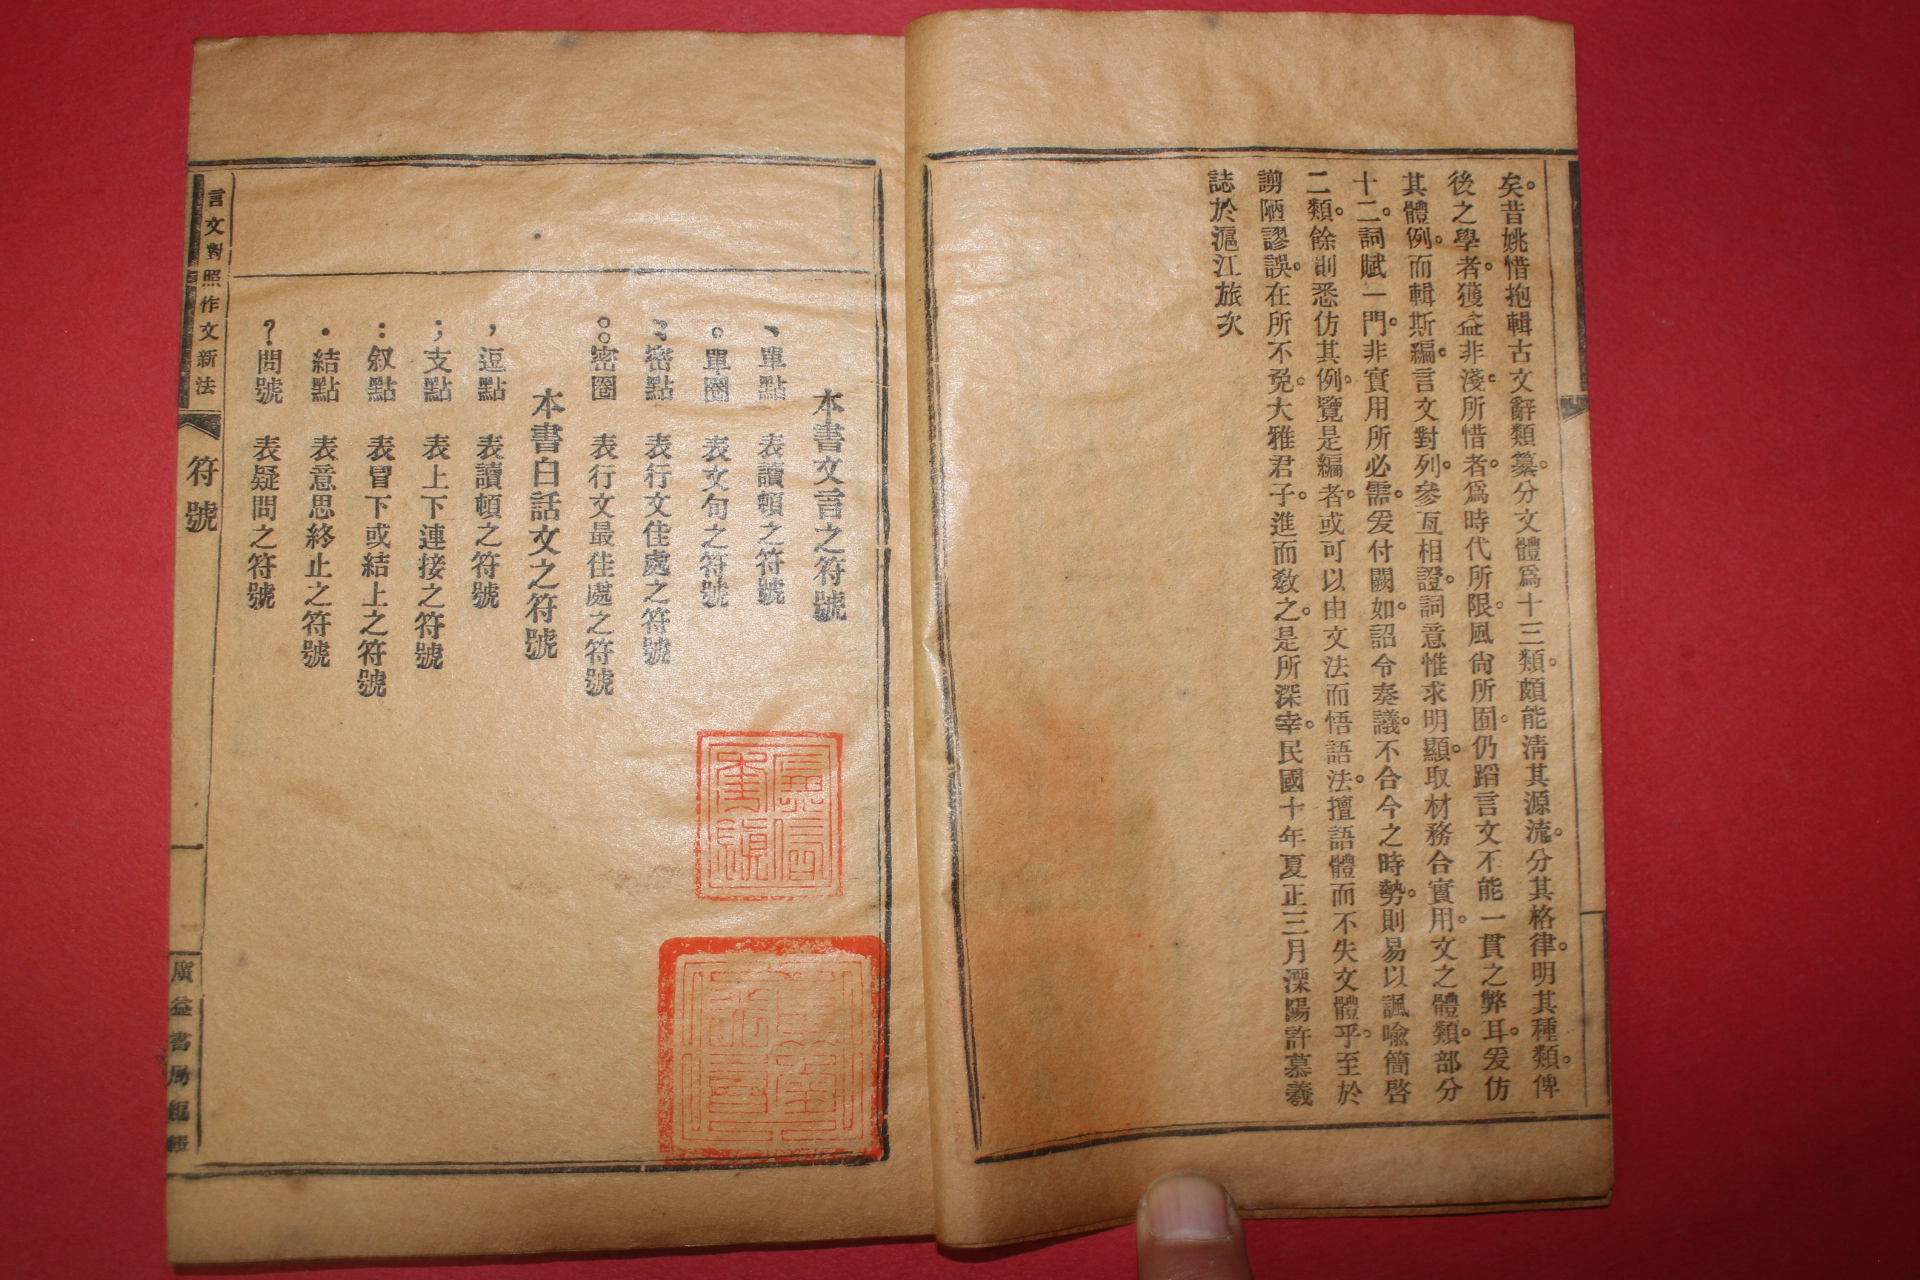 矣。昔姚惜抱輯古文辭類纂。分文體爲十三類。頗能淸其源流。分其格律。明其種類。俾
後之學者。獲益非淺。所惜者。爲時代所限。風尙所囿。仍蹈言文不能一貫之弊耳。爰仿
其體例。而輯斯編。言文對列。參互相證。詞意惟求明顯。取材務合實用。文之體類。部分
十二。詞賦一門。非實用所必需。爰付闕如。詔令奏議。不合今之時勢。則易以諷喩簡啓
二類。餘則悉仿其例。覽是編者。或可以由文法而悟語法。擅語體而不失文體乎。至於
謭陋謬誤。在所不免。大雅君子。進而敎之。是所深幸。民國十年夏正三月溧陽許慕羲
誌於滬江旅次
本書文言之符號
、單點　表讀頓之符號
。單圈　表文句之符號
、、密點　表行文佳處之符號
。。密圈　表行文最佳處之符號
本書白話文之符號
，逗點　表讀頓之符號
；支點　表上下連接之符號
：叙點　表冒下或結上之符號
．結點　表意思終止之符號
？問號　表疑問之符號
言文對照作文新法
符號
一
廣益書局編輯